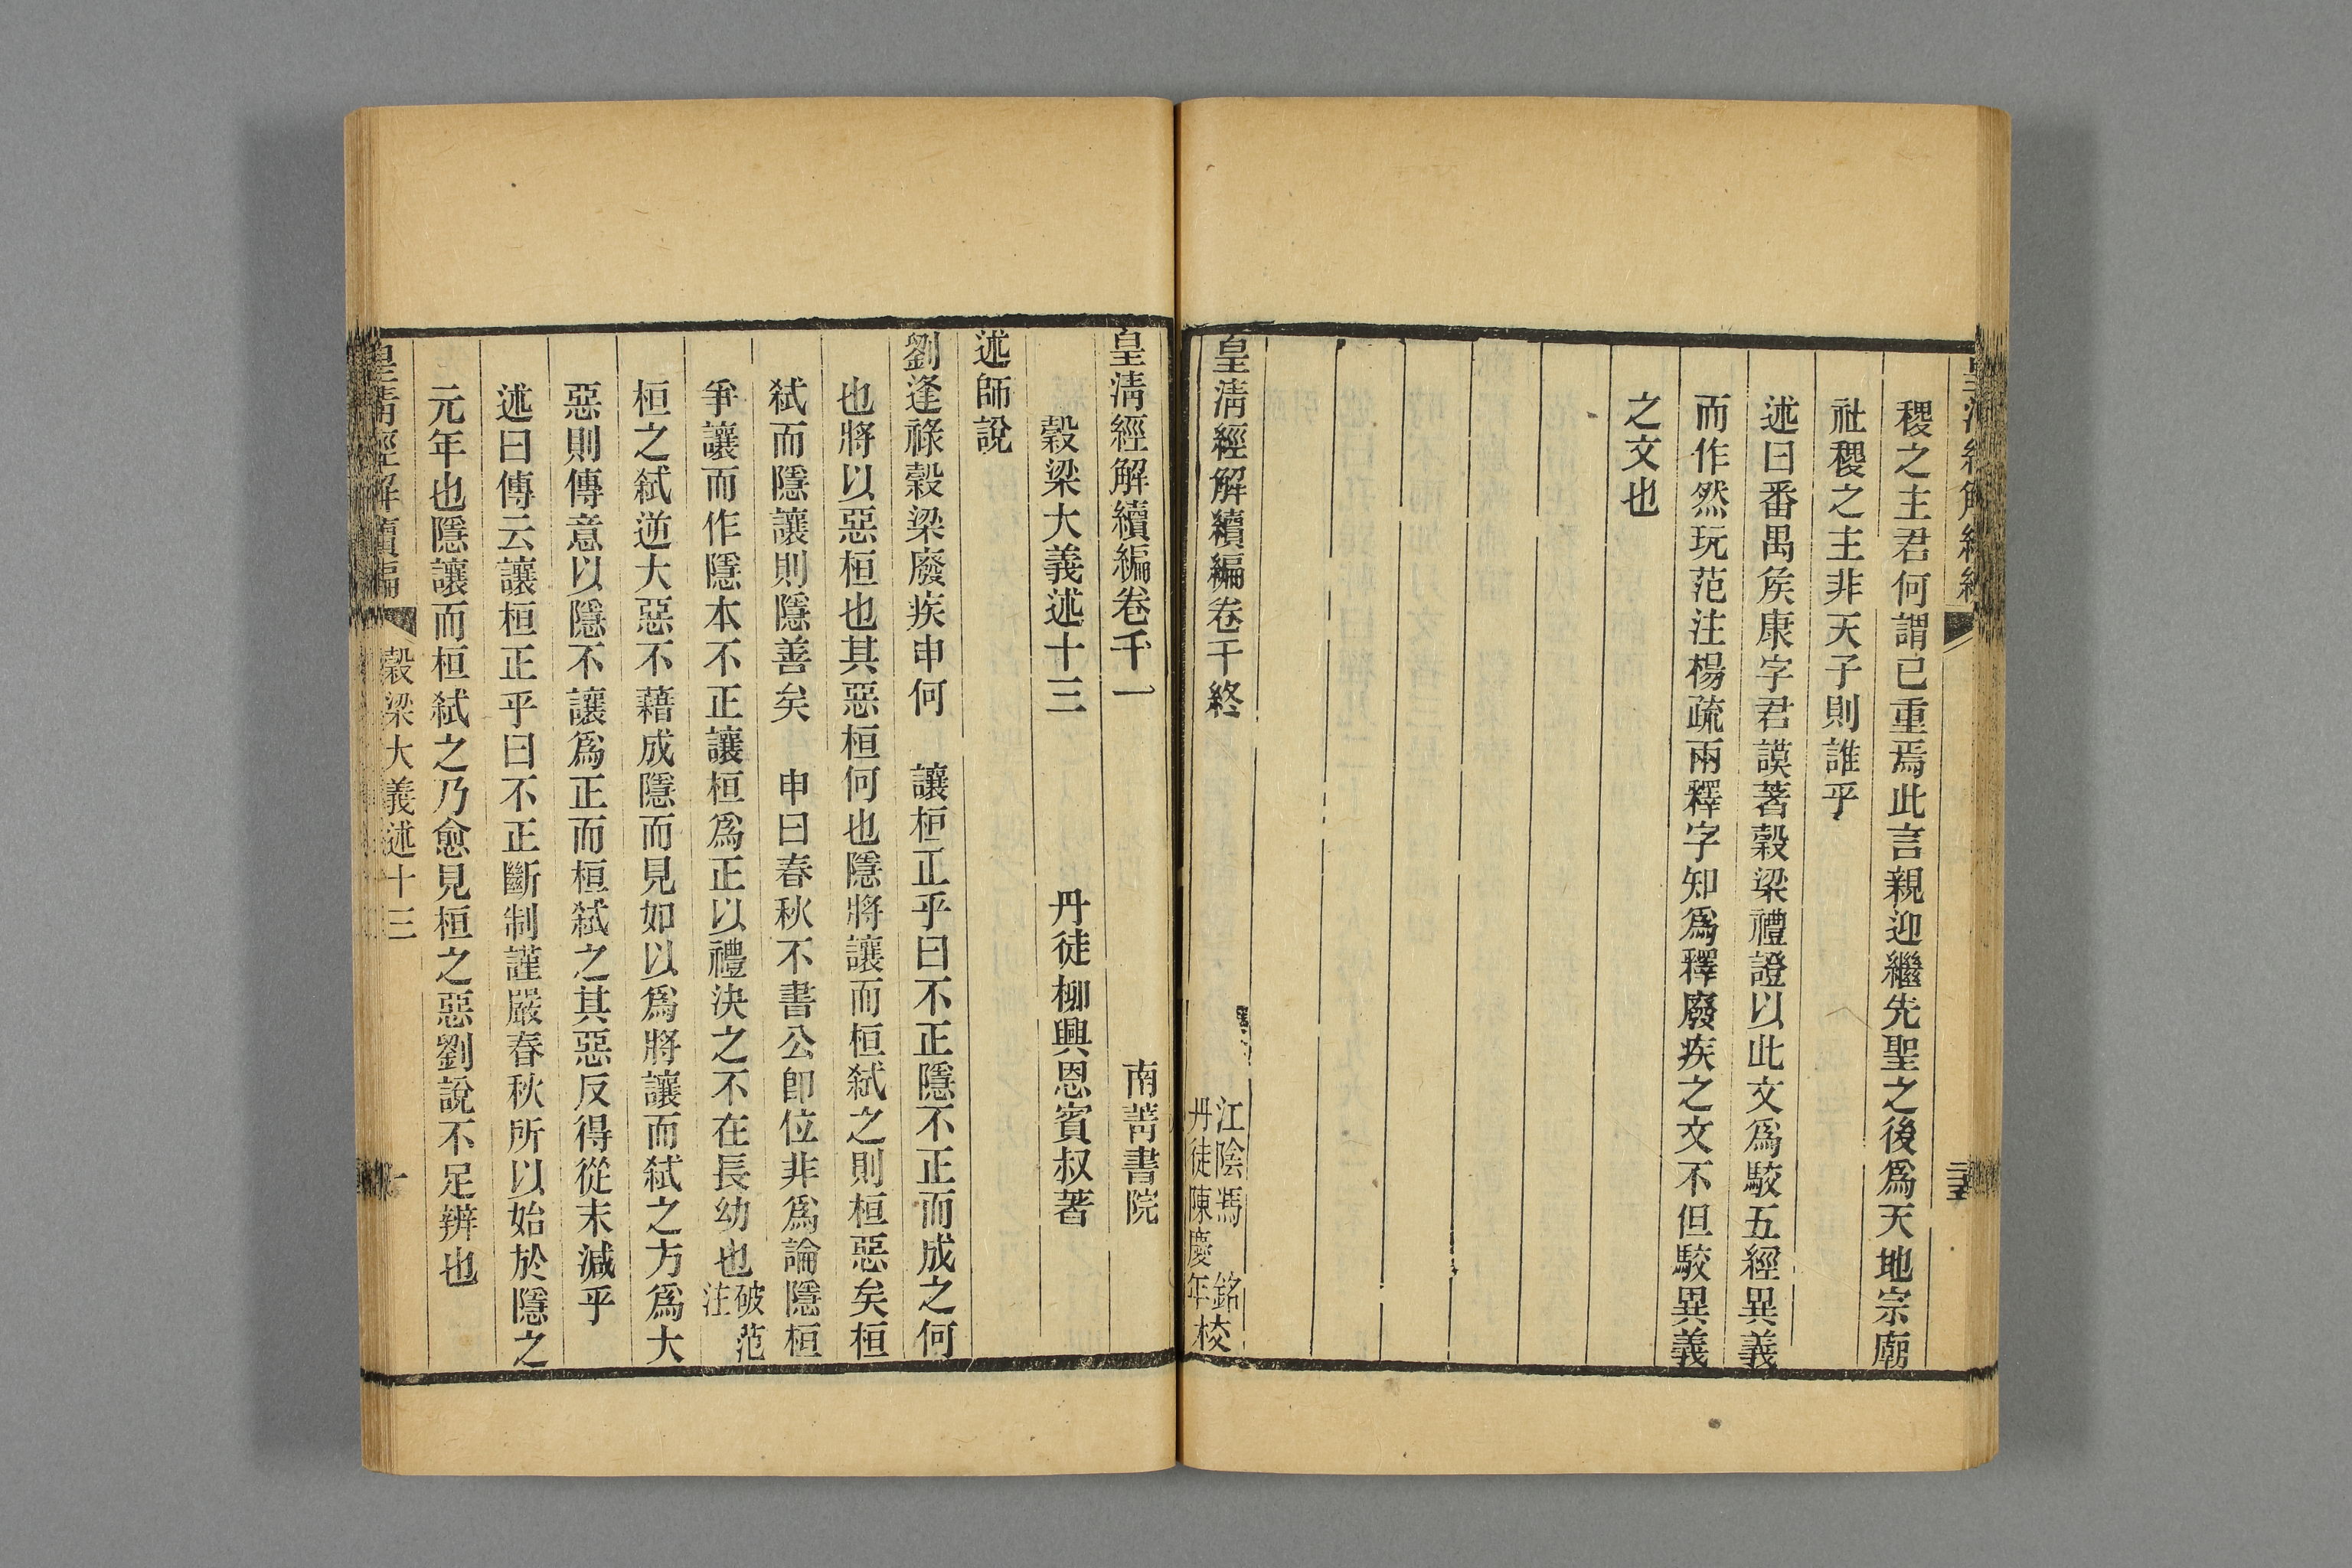 稷之主君何謂已重焉此言親迎繼先聖之後爲天地宗廟
社稷之主非天子則誰乎
述曰番禺矦康字君謨著穀梁禮證以此文爲駮五經異義
而作然玩范注楊疏兩釋字知爲釋廢疾之文不但駮異義
之文也
皇淸經解續編卷千終
江陰馮銘
丹徒陳慶年校
皇淸經解續編卷千一
南菁書院
穀梁大義述十三
丹徒柳興恩賓叔著
述師說
劉逢祿穀梁廢疾申何 讓桓正乎曰不正隱不正而成之何
也將以惡桓也其惡桓何也隱將讓而桓弑之則桓惡矣桓
弑而隱讓則隱善矣 申曰春秋不書公卽位非爲論隱桓
爭讓而作隱本不正讓桓爲正以禮決之不在長幼也破范
注
桓之弑逆大惡不藉成隱而見如以爲將讓而弑之方爲大
惡則傳意以隱不讓爲正而桓弑之其惡反得從末減乎
述曰傳云讓桓正乎曰不正斷制謹嚴春秋所以始於隱之
元年也隱讓而桓弑之乃愈見桓之惡劉說不足辨也
皇淸經解續編
穀梁大義述十三
一